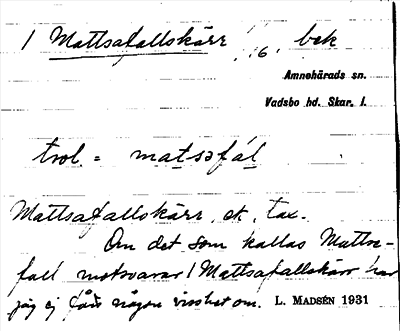 1 Mattsafallskärr 16 bek
Amnehärads sn.
Vadsbo hd. Skar. l.
trol. = matsəfál
Mattsafallskärr, ek, tax.
Om det som kallas Mattse-
fall motsvarar 1 Mattsafallskärr har
jag ej fått någon visshet om. L. MADSÉN 1931